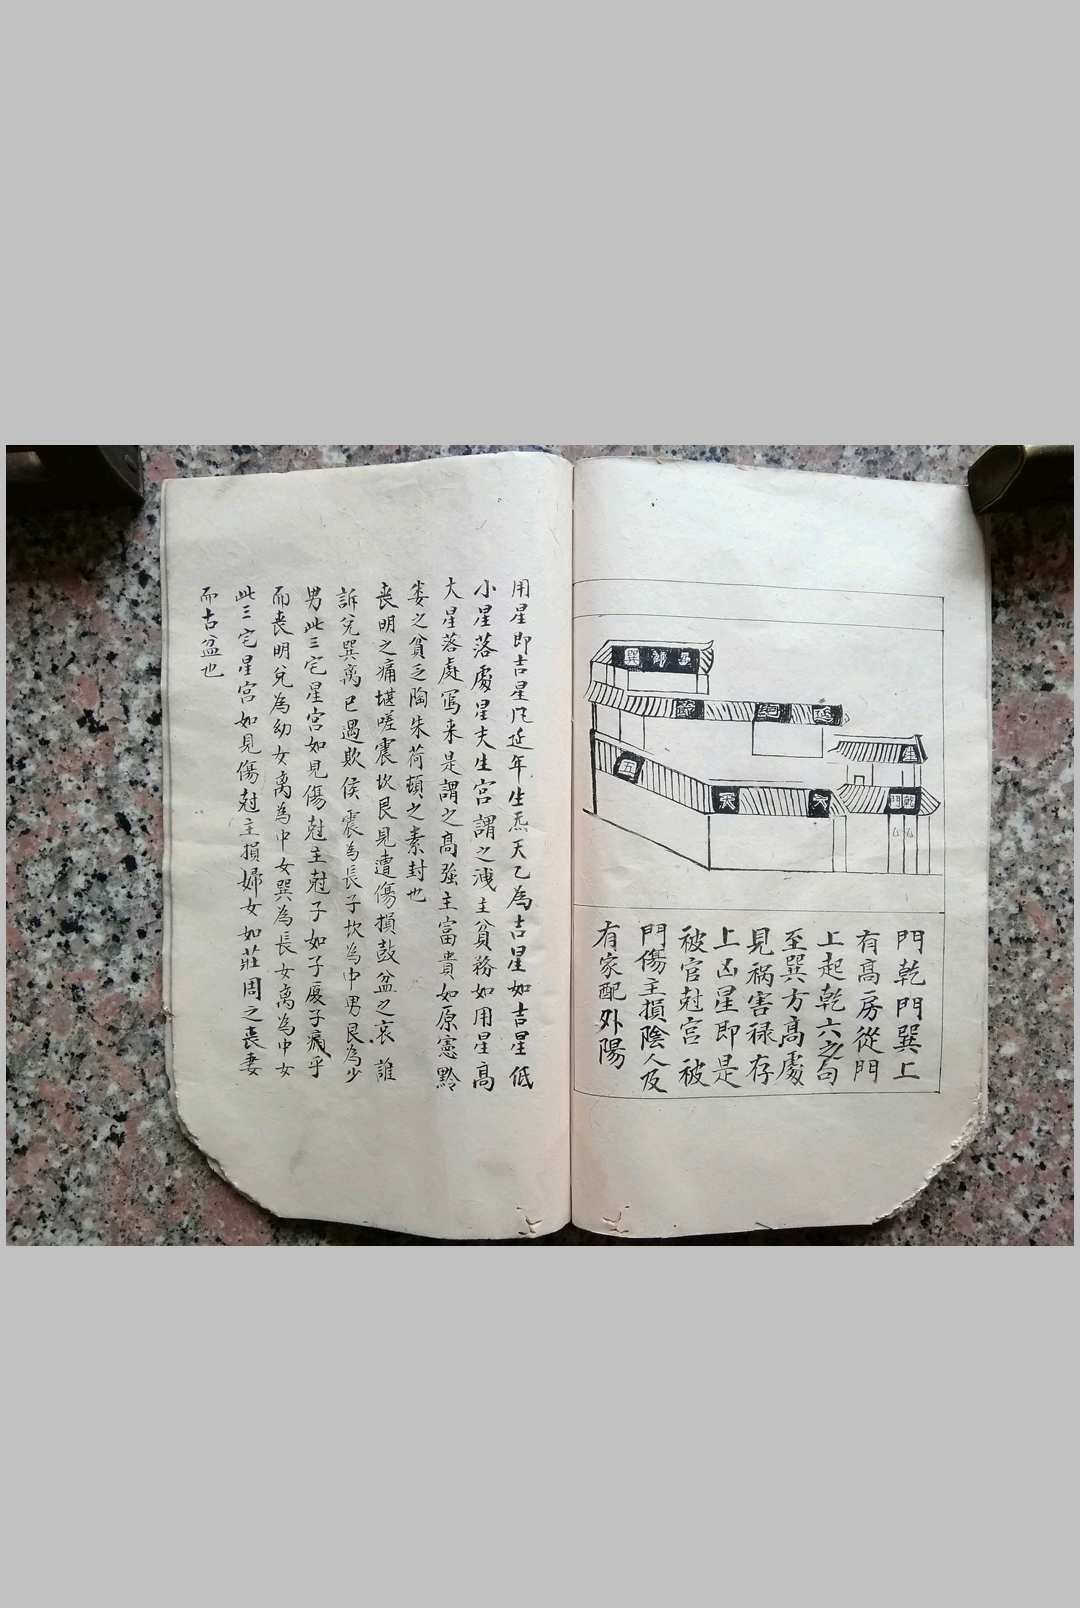 門乾門巽上
有高房從門
上起乾六之句
至巽方高處
見禍害祿存
上凶星即是
被官尅宮被
門傷主損陰人及
有家配外陽
生
門
六
天
五
巽
用星即吉星凡延年生炁天乙為吉星如吉星低
小星落處星夫生宮謂之洩主貧務如用星高
大星落處寫来是謂之高強主富貴如原憲黔
婁之貧乏陶朱荷頓之素封也
喪明之痛堪嗟震坎艮見遭傷損鼓盆之哀誰
訴兌巽离已遇欺侯震為長子坎為中男艮為少
男此三宅星宮如見傷尅主尅子如子夏子
而喪明兌為幼女离為中女巽為長女离為中女
此三宅星宮如見傷尅主損婦女如莊周之喪妻
而古盆也